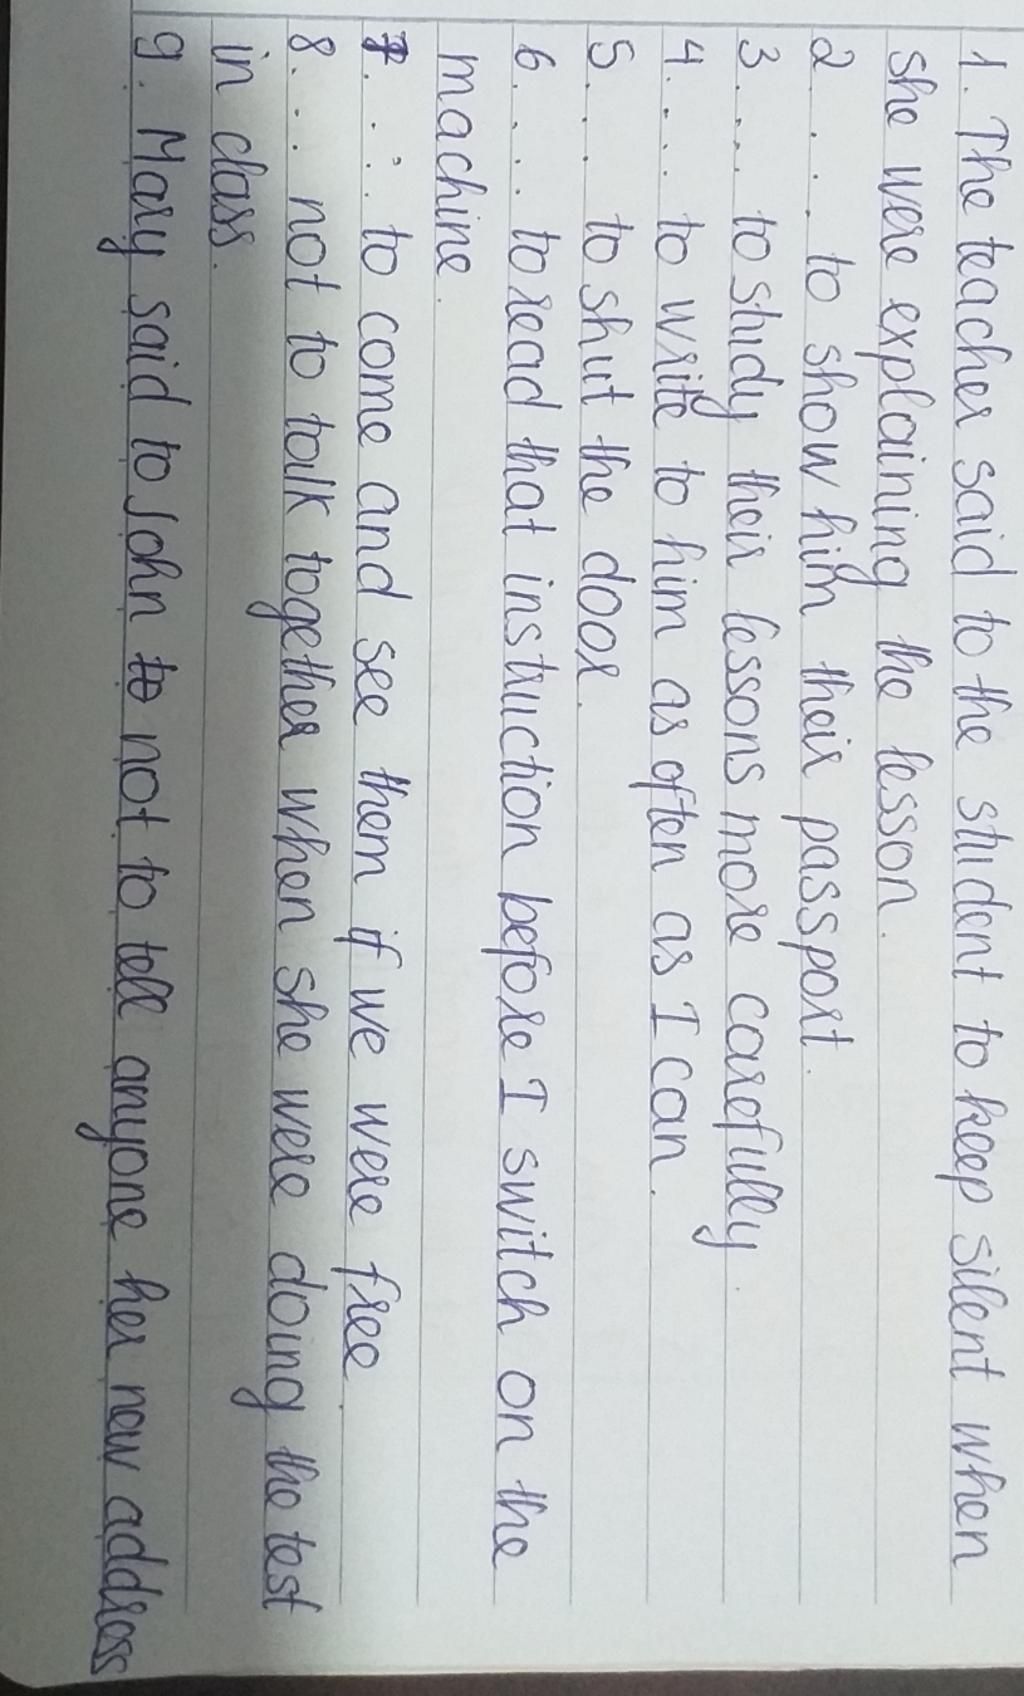 1. The teacher said to the student to keep silent when
she were explaining the lesson.
2 . . . to show him their passport.
3 . . . to study their lessons more carefully.
4 . . . to write to him as often as I can.
5 . . . to shut the door.
6 . . . to read that instruction before I switch on the
machine.
7 . . . to come and see them if we were free.
8 . . . not to talk together when she were doing the test
in class.
9. Mary said to John to not to tell anyone her new address